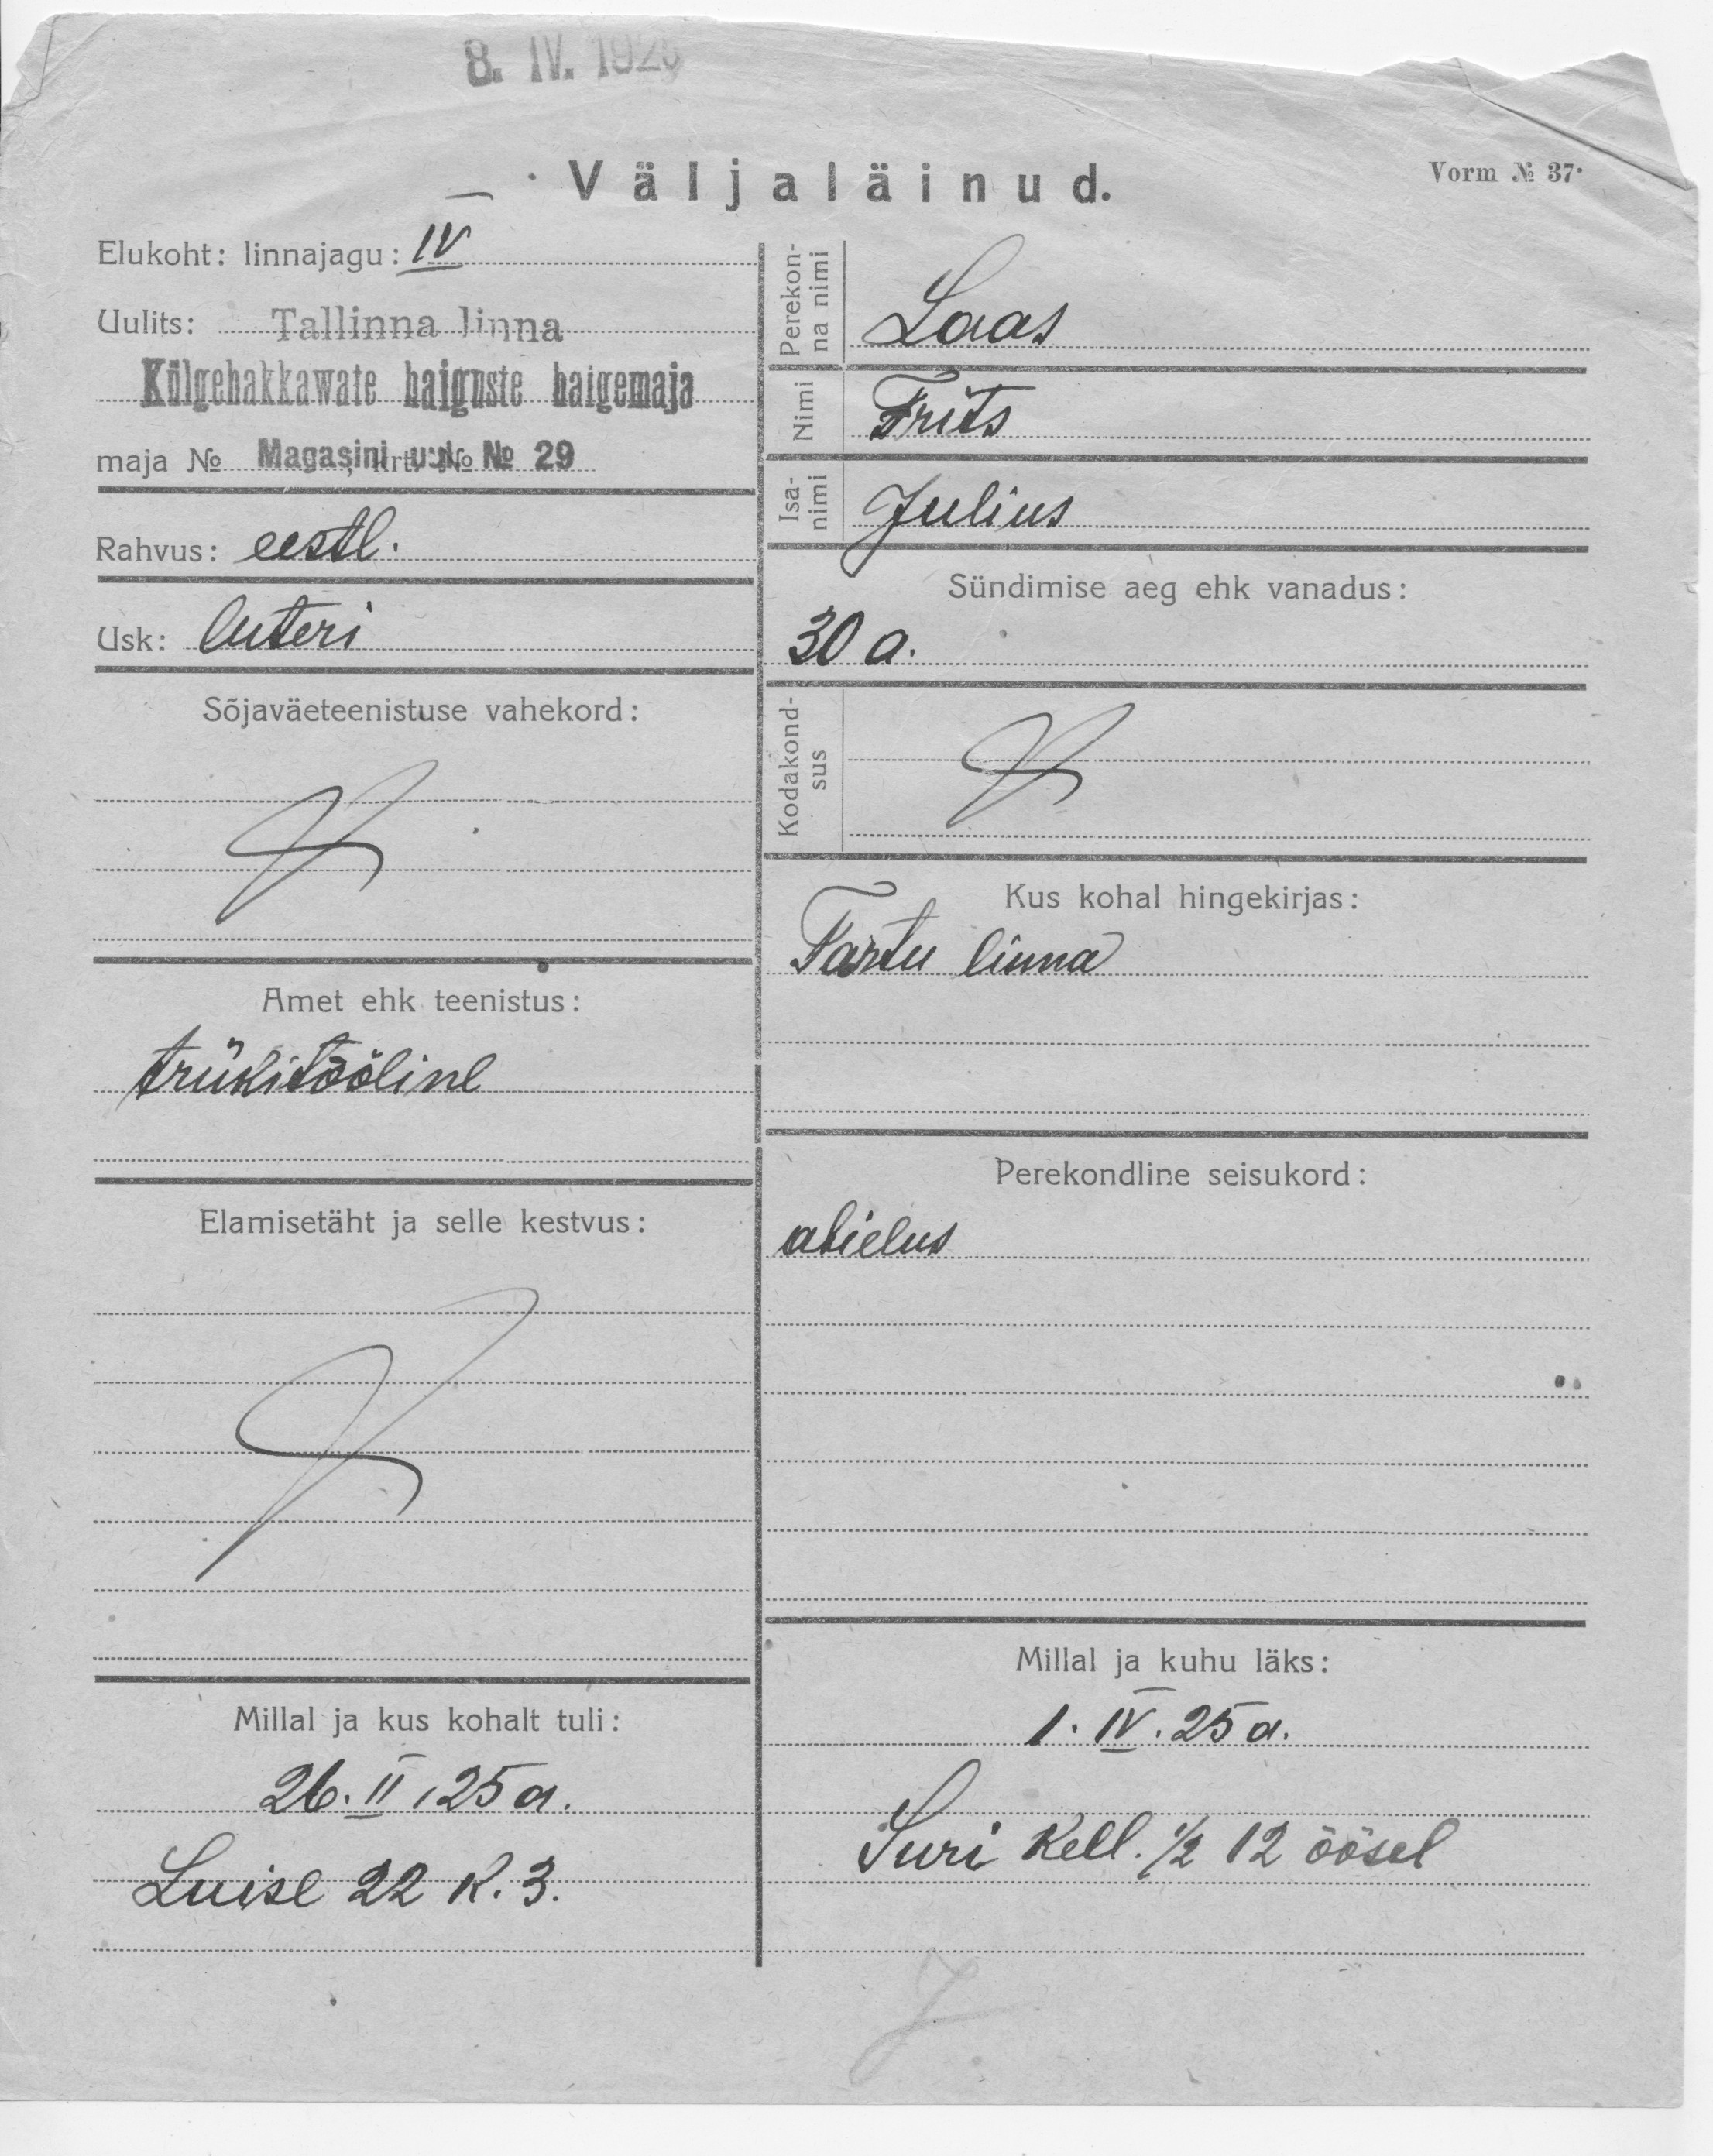 8. IV. 1925
Väljaläinud.
Vorm № 37.
Elukoht: linnajagu: IV
Uulits: Tallinna linna
Külgehakkawate haiguste haigemaja
maja № Magasini uul. № 29
krt. №
Rahvus: eestl.
Usk: luteri
Sõjaväeteenistuse vahekord:
Amet ehk teenistus:
trükitööline
Elamisetäht ja selle kestvus:
Millal ja kus kohalt tuli:
26. II 25 a.
Luise 22 k. 3.
Perekon-
na nimi
Laas
Nimi
Frits
Isa-
nimi
Julius
Sündimise aeg ehk vanadus:
30 a.
Kodakond-
sus
Kus kohal hingekirjas:
Tartu linna
Perekondline seisukord:
abielus
Millal ja kuhu läks:
1. IV. 25 a.
Suri kell. ½ 12 öösel